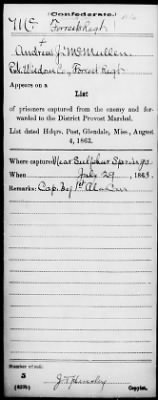 (Confederate.)
Mc Forrest's Regt
Andrew J. McMullen
Co., Forrest Regt
Appears on a
List
of prisoners captured from the enemy and for-
warded to the District Provost Marshal.
List dated Hdqrs. Post, Glendale, Miss., August
4, 1863.
Where captured Near Sulphur Springs.
When July 29, 1863.
Remarks: Cap. by 1st Ala Cav
Number of roll:
5
(639b) Copyist.